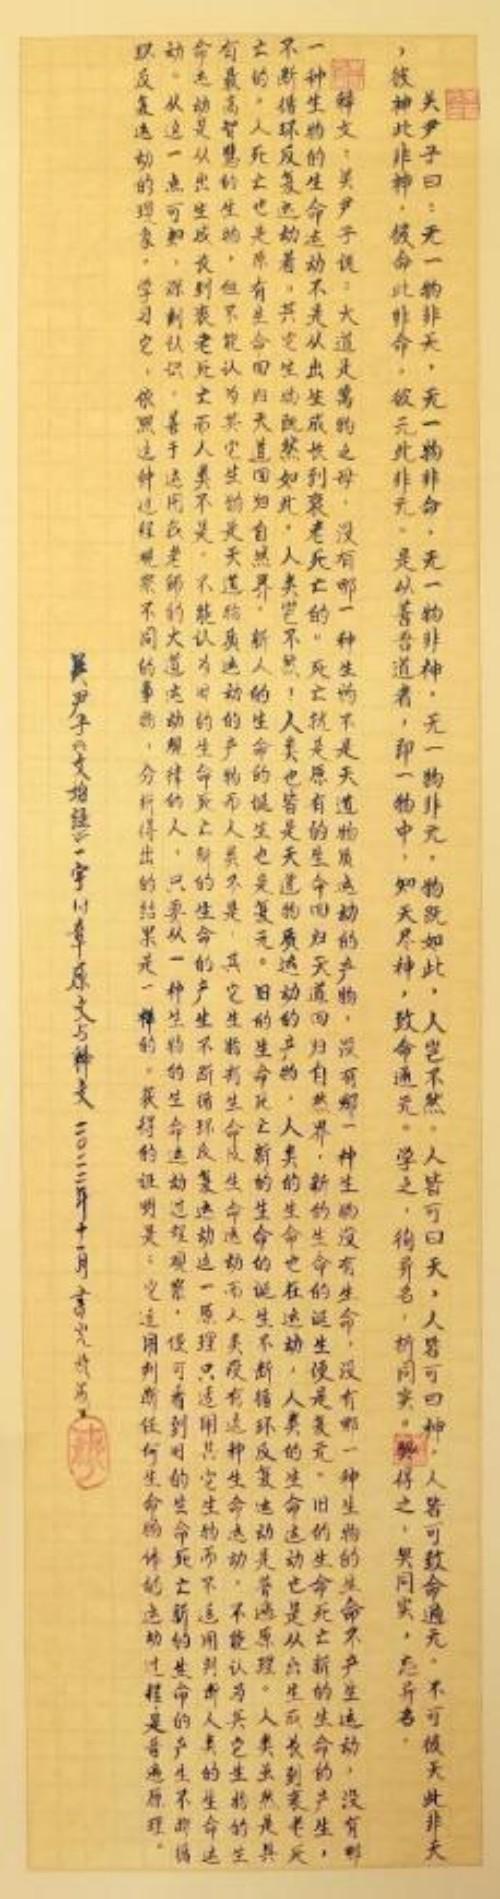 关尹子曰：无一物非天，无一物非命，无一物非神，无一物非元。物既如此，人岂不然。人皆可曰天，人皆可曰神，人皆可致命通元。不可彼天此非天
，彼神此非神，彼命此非命，彼元此非元。是以善吾道者，即一物中，知天尽神，致命通元。学之，徇异名，析同实。得之，契同实，忘异名。
释文：关尹子说：大道是万物之母，没有哪一种生物不是天道物质运动的产物，没有哪一种生物没有生命，没有哪一种生物的生命不产生运动，没有哪
一种生物的生命运动不是从出生成长到衰老死亡的。死亡就是原有的生命回归天道回归自然界，新的生命的诞生便是复元。旧的生命死亡新的生命的产生，
不断循环反复运动着，其它生物既然如此，人类岂不然！人类也皆是天道物质运动的产物，人类的生命也在运动，人类的生命运动也是从出生成长到衰老死
亡的。人死亡也是原有生命回归天道回归自然界，新人的生命的诞生也是复元。旧的生命死亡新的生命的诞生不断循环反复运动是普遍原理。人类虽然是具
有最高智慧的生物，但不能认为其它生物是天道物质运动的产物而人类不是，其它生物有生命及生命运动而人类没有这种生命运动，不能认为其它生物的生
命运动是从出生成长到衰老死亡而人类不是，不能认为旧的生命死亡新的生命的产生不断循环反复运动这一原理只适用其它生物而不适用判断人类的生命运
动。从这一点可知，深刻认识，善于运用我老师的大道运动规律的人，只要从一种生物的生命运动过程观察，便可看到旧的生命死亡新的生命的产生不断循
环反复运动的现象。学习它，依照这种过程观察不同的事物，分析得出的结果是一样的。获得的证明是：它适用判断任何生命物体的运动过程是普遍原理。
关尹子《文始经》一宇 章原文与释文 二〇二二年十一月 书